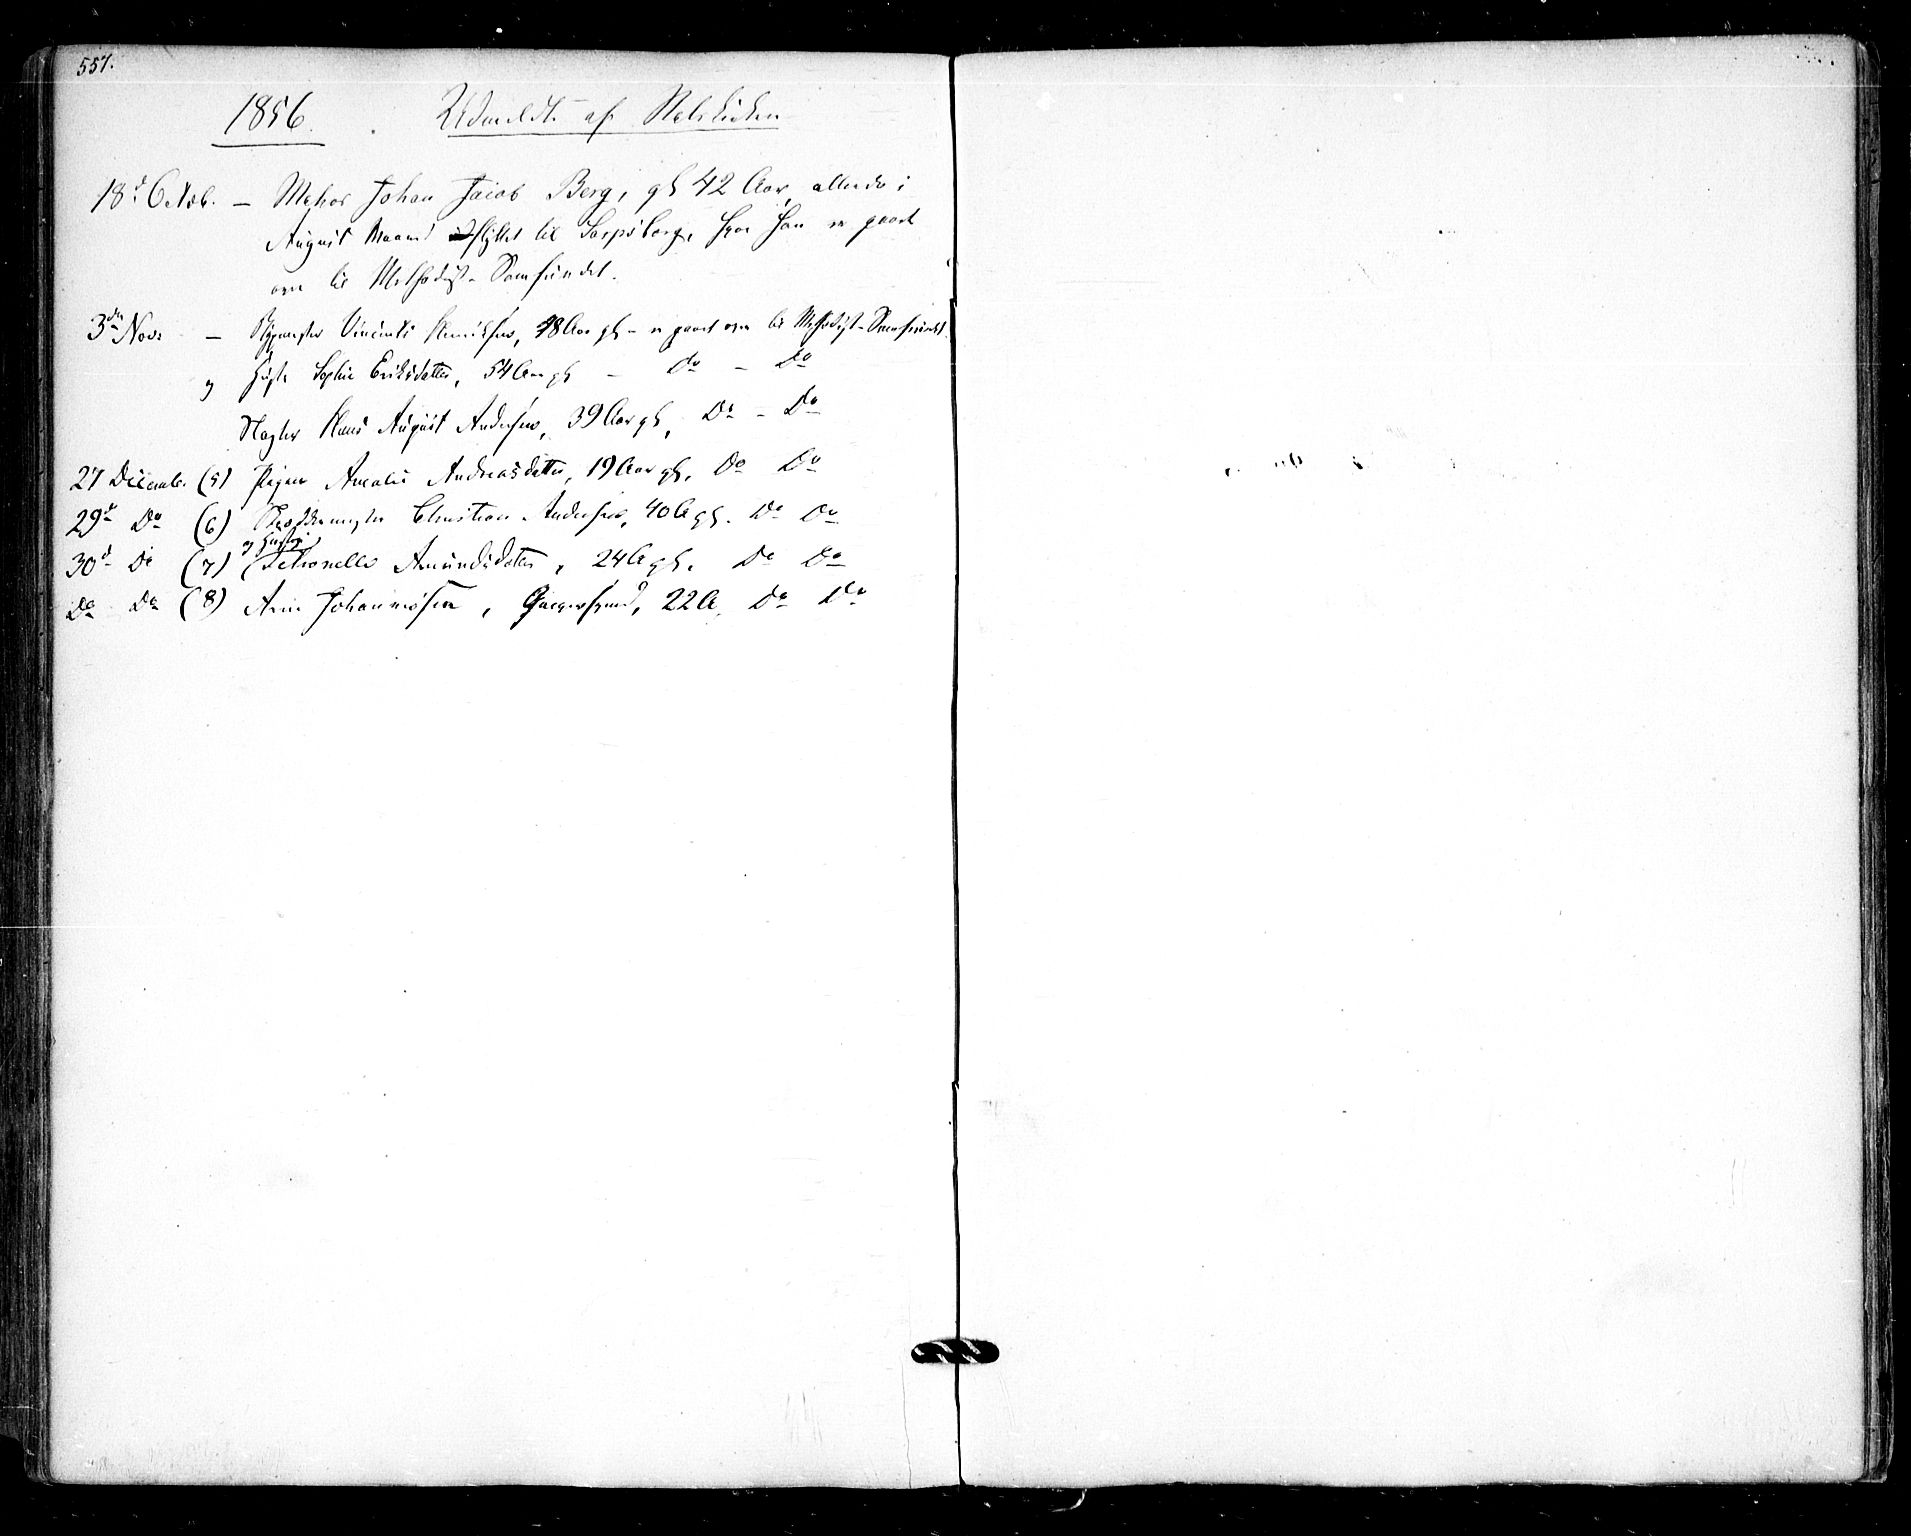 557.
1856. Udmeldte af Statskirken
18d Octob. — Johan Jacob Berg, gl 42 Aar, allerede i
August Maaned flyttet til Sarpsborg, hvor han er gaaet
over til Methodist-Samfundet.
3die Novr — Vincents Henriksen, 48 Aar gl – er gaaet over til Methodist-Samfundet
og Sophie Eriksdatter, 54 Aar gl – Do – Do
Hans August Andersen, 39 Aar gl, Do – Do
27 Decemb. (5) Pigen Amalie Andreasdatter, 19 Aar gl, Do Do
29d Do (6) Christian Andersen, 40 A gl. Do Do
og Hustru
30d Do (7) Petronelle Amundsdatter, 24 A gl. Do Do
Do Do (8) Johannesen, 22 A, Do Do